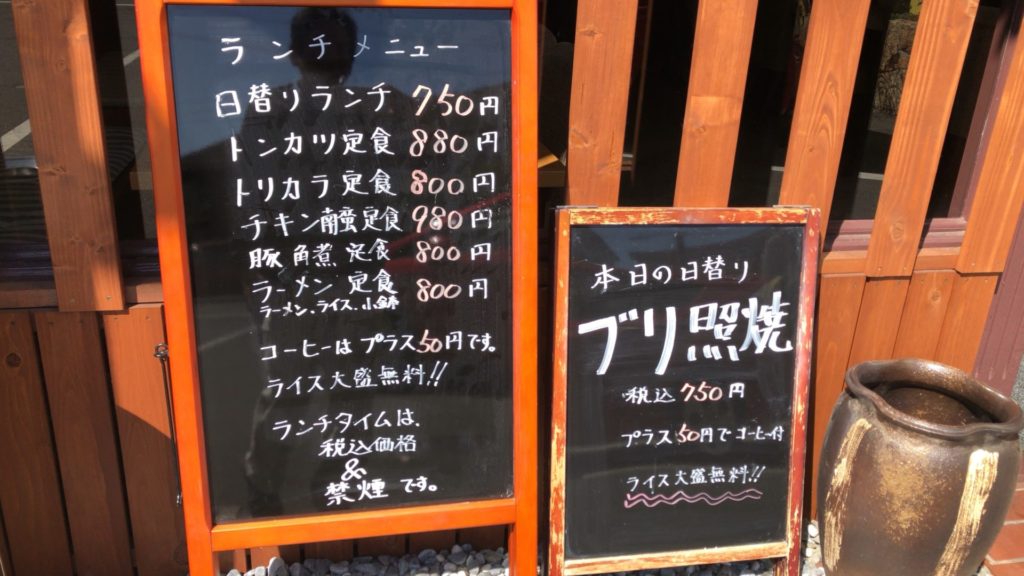 ランチメニュー
日替りランチ 750円
トンカツ定食 880円
トリカラ定食 800円
チキン南蛮定食 980円
豚角煮定食 800円
ラーメン定食 800円
ラーメン、ライス、小鉢
コーヒーはプラス50円です。
ライス大盛無料!!
ランチタイムは、
税込価格
&
禁煙です。
本日の日替り
ブリ照焼
税込750円
プラス50円でコーヒー付
ライス大盛無料!!